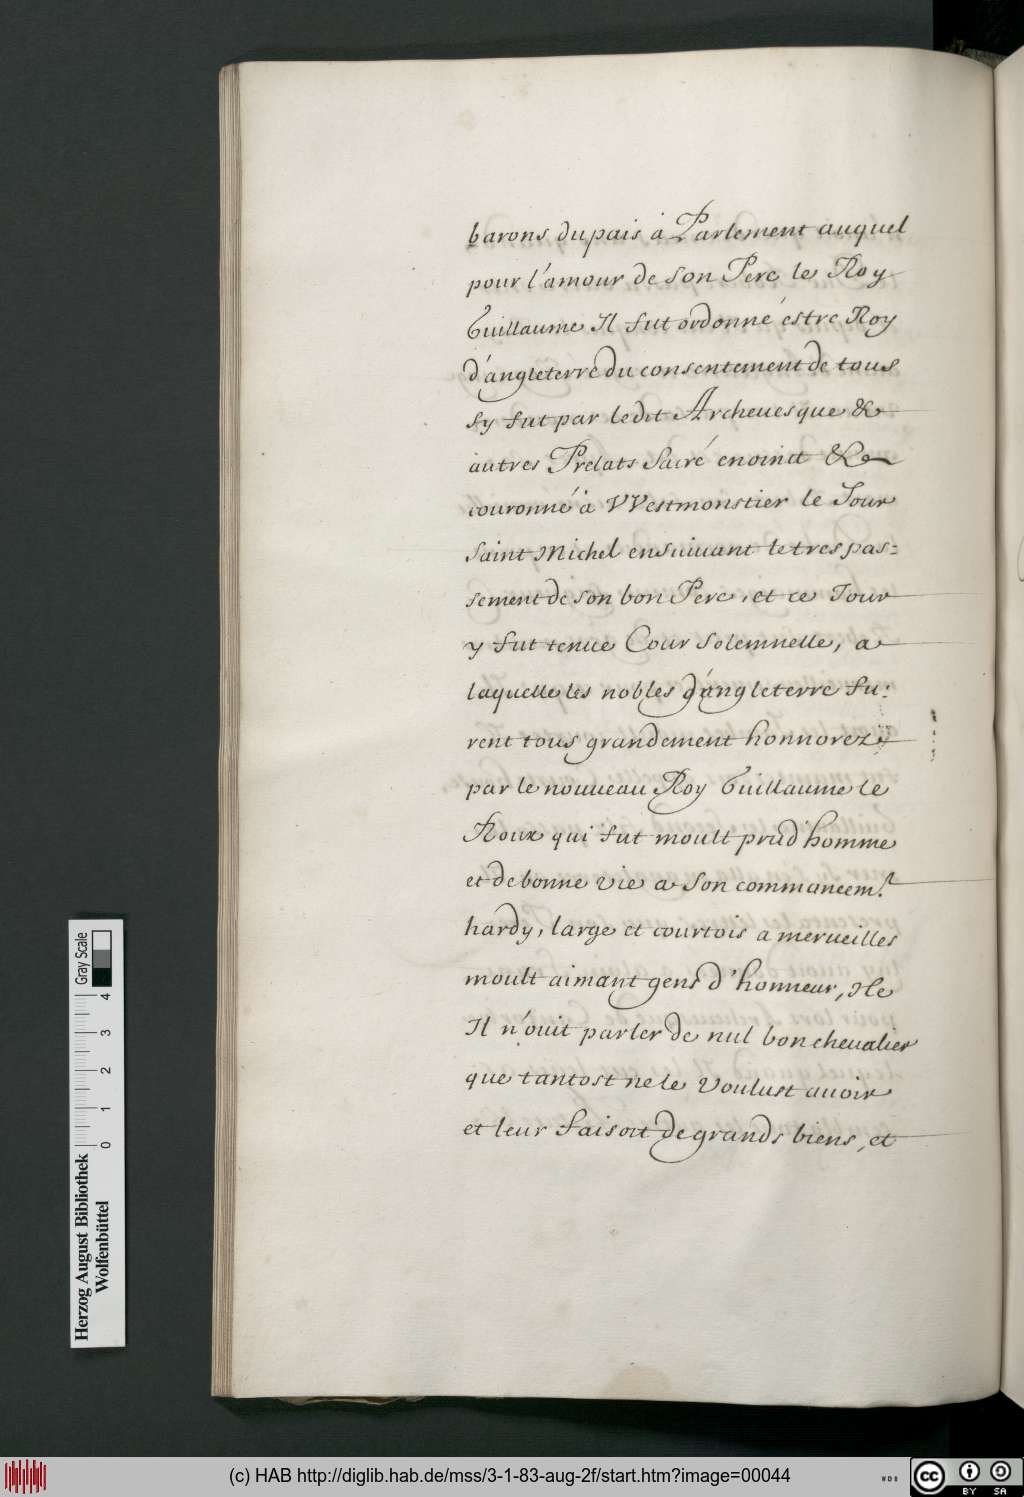 barons du pais à Parlement auquel
pour l'amour de son Pere le Roy
Guillaume Il fut ordonné éstre Roy
d'angleterre du consentement de tous
sy fut par ledit Archeuesque &
autres Prelats Sacré enoinct &
couronné à VVestmonstier le Jour
Saint Michel ensuiuant le trespas=
sement de son bon Pere, et ce Jour
y fut tenue Cour solemnelle, a
laquelle les nobles d'angleterre fu:
rent tous grandement honnorez
par le nouueau Roy Guillaume le
Roux qui fut moult prud'homme
et de bonne vie a son commancem.t
hardy, large et courtois a merueilles
moult aimant gens d'honneur, Ne
Il n'ouit parler de nul bon cheualier
que tantost ne le voulust auoir
et leur faisoit de grands biens, et
Gray Scale
4 3 2 1 0
Herzog August Bibliothek
Wolfenbüttel
(c) HAB http://diglib.hab.de/mss/3-1-83-aug-2f/start.htm?image=00044
WDB
cc BY SA